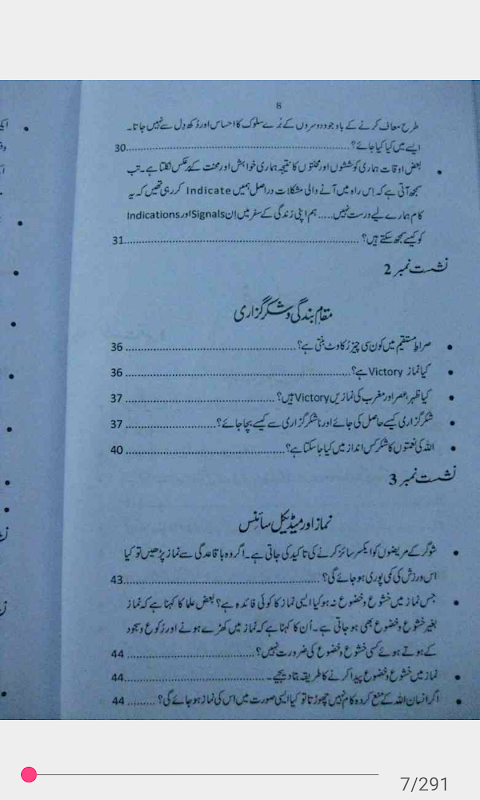 8
طرح معاف کرنے کے باوجود دوسروں کے بُرے سلوک کا احساس اور دُکھ دل سے نہیں جاتا۔
ایسے میں کیا کیا جائے؟ ........ 30
• بعض اوقات ہماری کوششوں اور محنتوں کا نتیجہ ہماری خواہش اور محنت کے برعکس نکلتا ہے۔ تب
سمجھ آتی ہے کہ اِس راہ میں آنے والی مشکلات دراصل ہمیں Indicate کر رہی تھیں کہ یہ
کام ہمارے لیے درست نہیں ..... ہم اپنی زندگی کے سفر میں اِن Signals اور Indications
کو کیسے سمجھ سکتے ہیں؟ ........ 31
نشست نمبر 2
مقامِ بندگی و شکر گزاری
• صراطِ مستقیم میں کون سی چیز رُکاوٹ بنتی ہے؟ ........ 36
• کیا نماز Victory ہے؟ ........ 36
• کیا ظہر، عصر اور مغرب کی نمازیں Victory ہیں؟ ........ 37
• شکر گزاری کیسے حاصل کی جائے اور ناشکر گزاری سے کیسے بچا جائے؟ ........ 37
• اللہ کی نعمتوں کا شکر کس انداز میں کیا جا سکتا ہے؟ ........ 40
نشست نمبر 3
نماز اور میڈیکل سائنس
• شوگر کے مریضوں کو ایکسرسائز کرنے کی تاکید کی جاتی ہے۔ اگر وہ باقاعدگی سے نماز پڑھیں تو کیا
اس ورزش کی کمی پوری ہو جائے گی؟ ........ 43
• جس نماز میں خشوع و خضوع نہ ہو کیا ایسی نماز کا کوئی فائدہ ہے؟ بعض علما کا کہنا ہے کہ نماز
بغیر خشوع و خضوع بھی ہو جاتی ہے۔ اُن کا کہنا ہے کہ نماز میں کھڑے ہونے اور رُکوع و سجود
کے ہوتے ہوئے کسی خشوع و خضوع کی ضرورت نہیں؟ ........ 44
• نماز میں خشوع و خضوع پیدا کرنے کا طریقہ بتا دیجیے۔ ........ 44
• اگر انسان اللہ کے منع کردہ کام نہیں چھوڑتا تو کیا ایسی صورت میں اس کی نماز ہو جائے گی؟ ........ 44
7/291